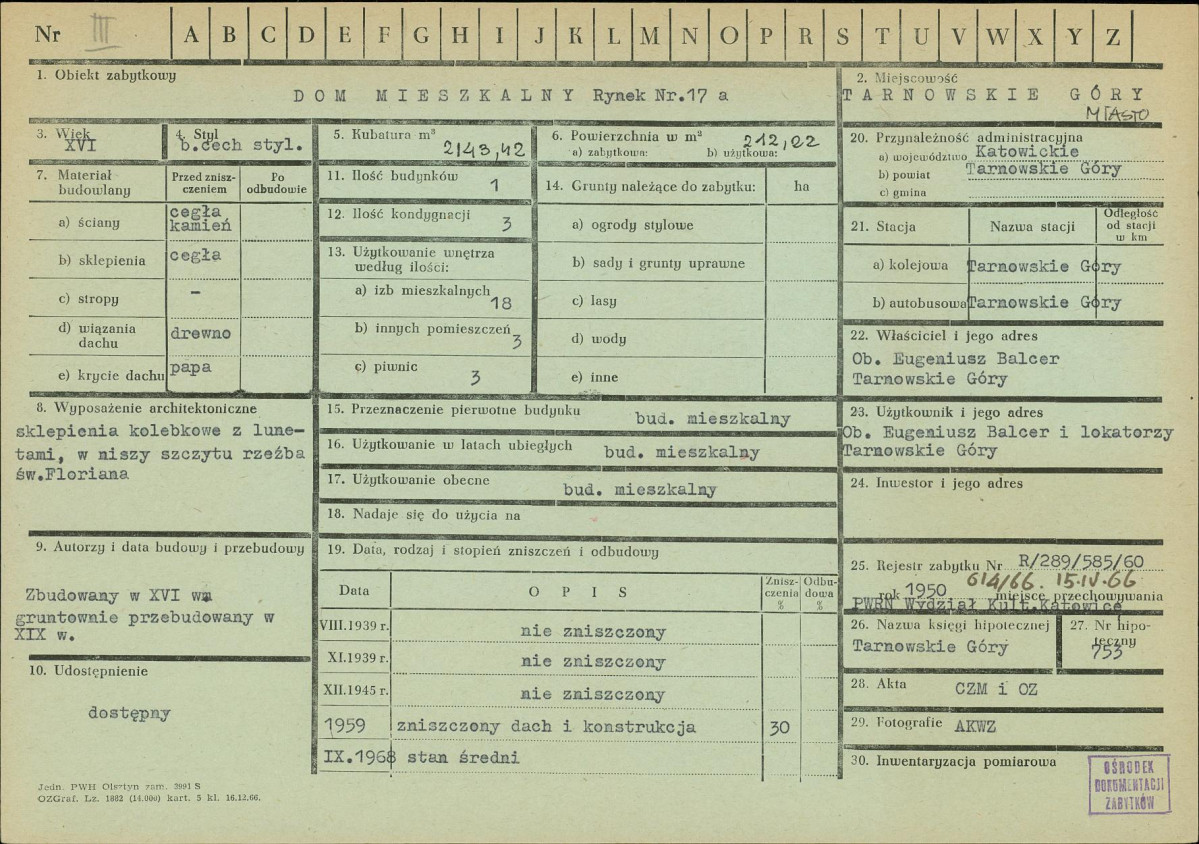 Nr III A B C D E F G H I J K L M N O P R S T U V W X Y Z
1. Obiekt zabytkowy
DOM MIESZKALNY Rynek Nr.17 a
2. Miejscowość
TARNOWSKIE GÓRY
MIASTO
3. Wiek
XVI
4. Styl
b.cech styl.
5. Kubatura m³
2143,42
6. Powierzchnia w m²
a) zabytkowa: b) użytkowa:
212,02
7. Materiał budowlany
Przed zniszczeniem
Po odbudowie
a) ściany
cegła
kamień
b) sklepienia
cegła
c) stropy
–
d) wiązania dachu
drewno
e) krycie dachu
papa
8. Wyposażenie architektoniczne
sklepienia kolebkowe z lune-
tami, w niszy szczytu rzeźba
św.Floriana
9. Autorzy i data budowy i przebudowy
Zbudowany w XVI w
gruntownie przebudowany w
XIX w.
10. Udostępnienie
dostępny
11. Ilość budynków
1
12. Ilość kondygnacji
3
13. Użytkowanie wnętrza
według ilości:
a) izb mieszkalnych
18
b) innych pomieszczeń
3
c) piwnic
3
14. Grunty należące do zabytku: ha
a) ogrody stylowe
b) sady i grunty uprawne
c) lasy
d) wody
e) inne
15. Przeznaczenie pierwotne budynku
bud. mieszkalny
16. Użytkowanie w latach ubiegłych
bud. mieszkalny
17. Użytkowanie obecne
bud. mieszkalny
18. Nadaje się do użycia na
19. Data, rodzaj i stopień zniszczeń i odbudowy
Data
OPIS
Znisz-
czenia
%
Odbu-
dowa
%
VIII.1939 r. nie zniszczony
XI.1939 r. nie zniszczony
XII.1945 r. nie zniszczony
1959 zniszczony dach i konstrukcja 30
IX.1968 stan średni
20. Przynależność administracyjna
a) województwo Katowickie
b) powiat Tarnowskie Góry
c) gmina
21. Stacja
Nazwa stacji
Odległość
od stacji
w km
a) kolejowa Tarnowskie Góry
b) autobusowa Tarnowskie Góry
22. Właściciel i jego adres
Ob. Eugeniusz Balcer
Tarnowskie Góry
23. Użytkownik i jego adres
Ob. Eugeniusz Balcer i lokatorzy
Tarnowskie Góry
24. Inwestor i jego adres
25. Rejestr zabytku Nr R/289/585/60
614/66. 15.IV.66
rok 1950 miejsce przechowywania
PWRN Wydział Kult.Katowice
26. Nazwa księgi hipotecznej
Tarnowskie Góry
27. Nr hipo-
teczny
753
28. Akta CZM i OZ
29. Fotografie AKWZ
30. Inwentaryzacja pomiarowa
OŚRODEK
DOKUMENTACJI
ZABYTKÓW
Jedn. PWH Olsztyn zam. 2991 S
OZGraf. Lz. 1882 (14.000) kart. 5 kl. 16.12.66.